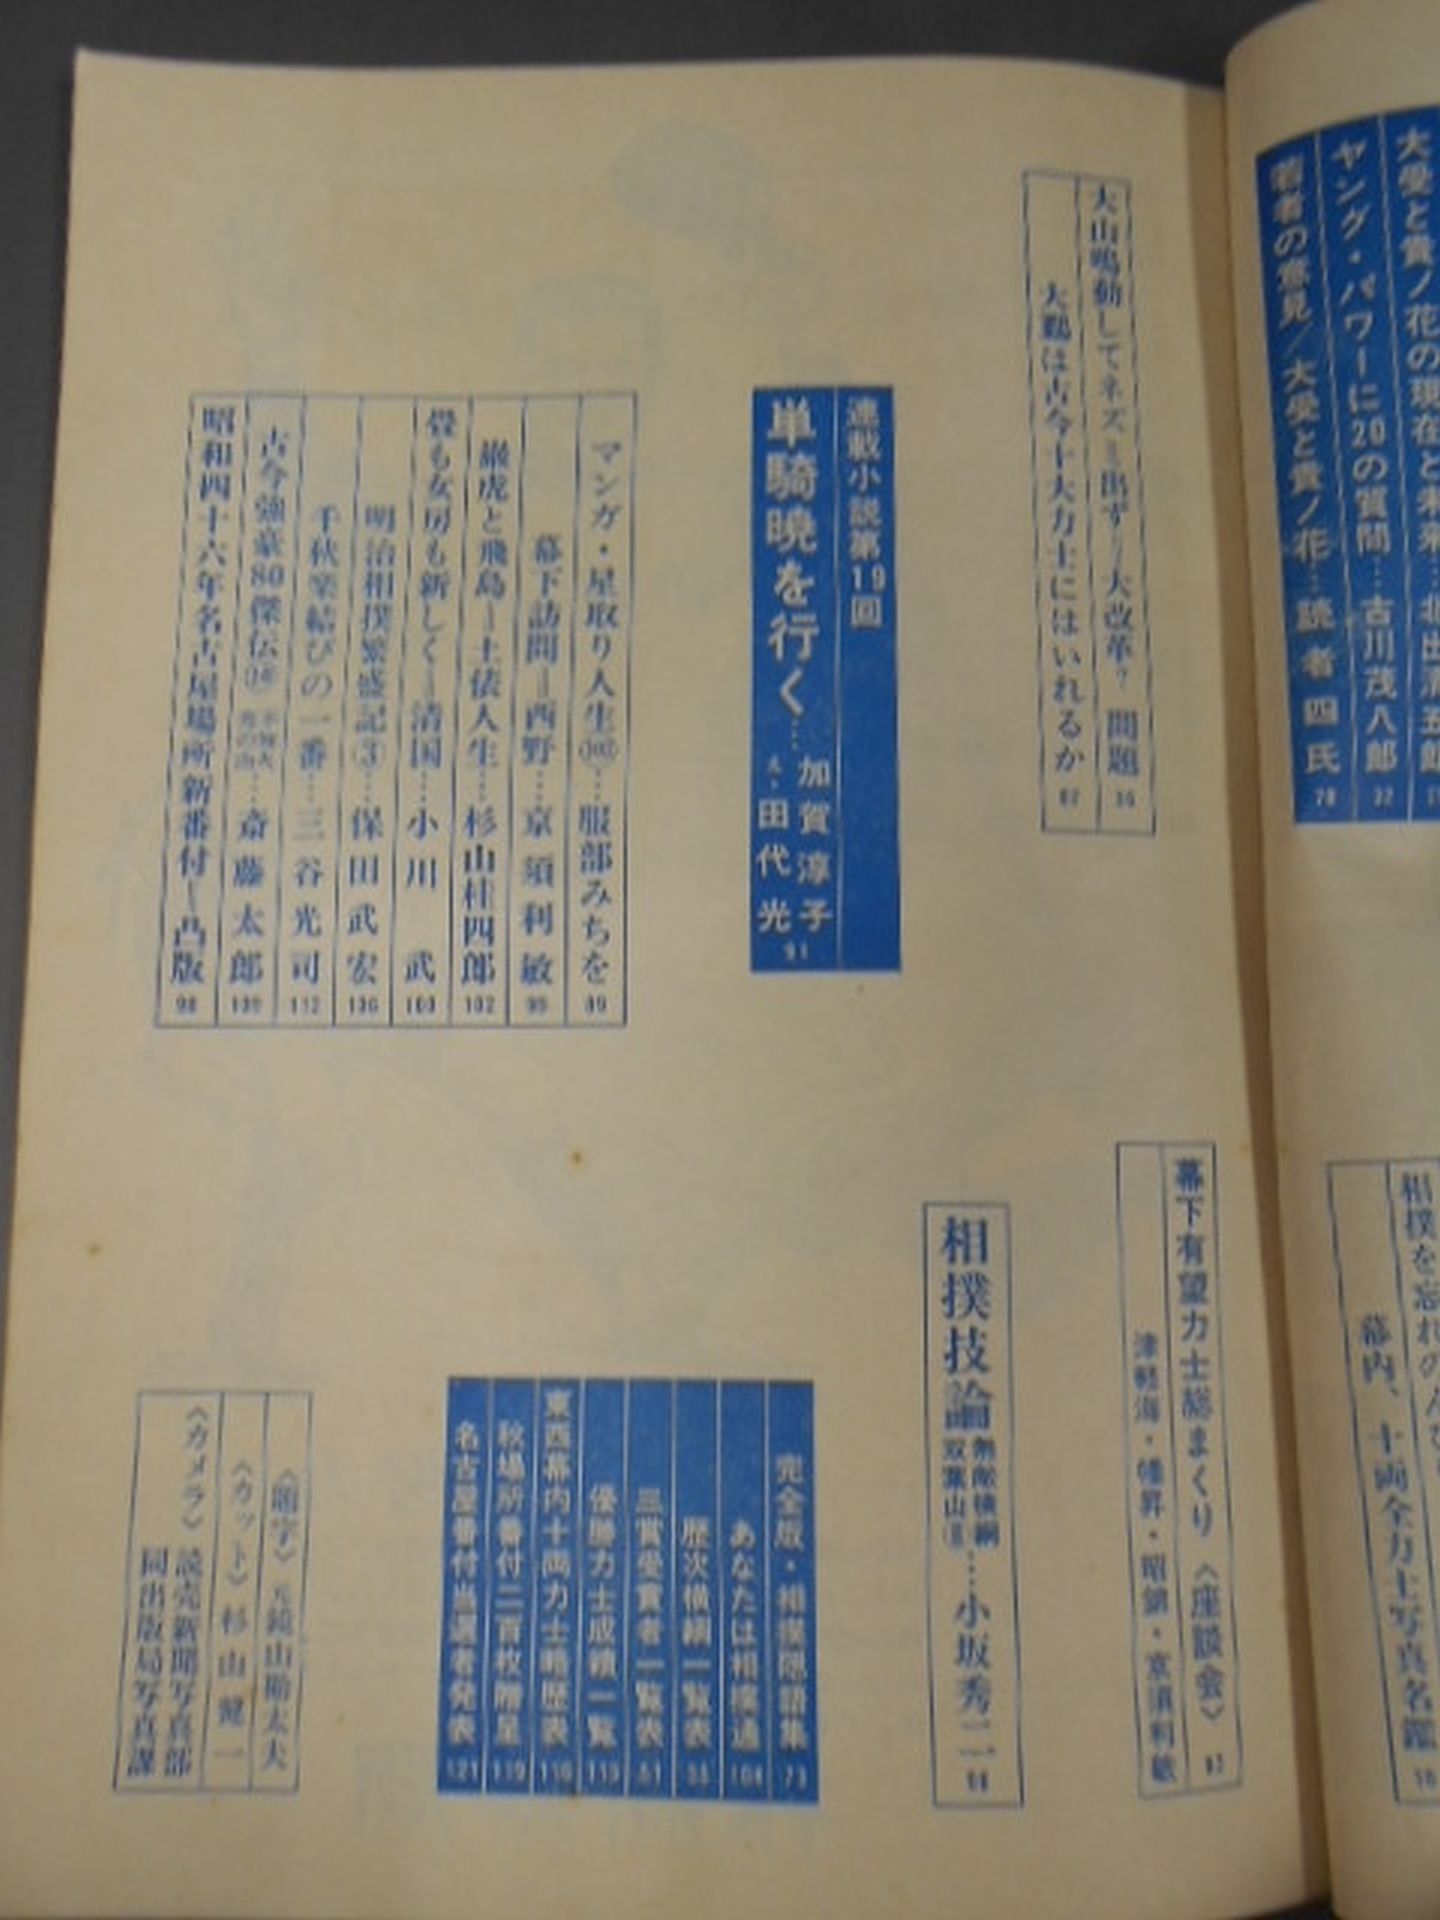 大受と貴ノ花の現在と未来…
ヤング・パワーに20の質問…古川茂八郎 32
若者の意見/大受と貴ノ花…読者四氏 78
大山鳴動してネズミ出ず=大改革?問題
大鵬は古今十大力士にはいれるか 67
連載小説第19回
単騎暁を行く…加賀淳子
え・田代光 91
マンガ・星取り人生…服部みちを 89
幕下訪問=西野…京須利敏 99
巌虎と飛島=土俵人生…杉山桂四郎 102
畳も女房も新しく=清国…小川武 103
明治相撲繁盛記③…保田武宏 136
千秋楽結びの一番…三谷光司 112
古今強豪80傑伝…斎藤太郎
昭和四十六年名古屋場所新番付=凸版 98
相撲を忘れのんびり
幕内、十両全力士写真名鑑
幕下有望力士総まくり〈座談会〉
津軽海・幡昇・昭錦・京須利敏
相撲技論 無敵横綱
双葉山…小坂秀二
完全版・相撲隠語集 73
あなたは相撲通 104
歴次横綱一覧表
三賞受賞者一覧表
優勝力士成績一覧
東西幕内十両力士略歴表
秋場所番付二百枚贈呈
名古屋番付当選者発表 121
〈題字〉元鏡山勘太夫
〈カット〉杉山健一
〈カメラ〉読売新聞写真部
同出版局写真課